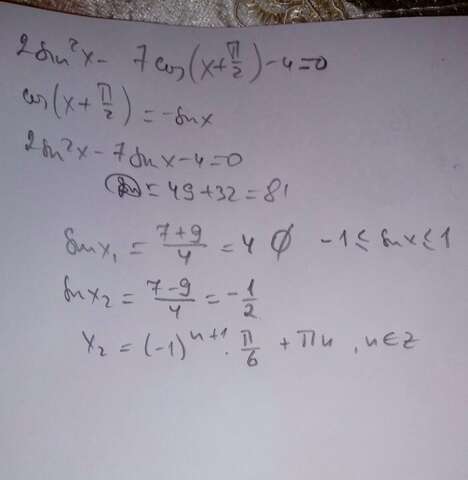 2sin²x - 7cos(x+π/2) - 4=0
cos(x+π/2) = -sinx
2sin²x - 7sinx - 4=0
= 49+32=81
sinx₁ = (7+9)/4 = 4 ∅ -1≤ sinx≤1
sinx₂ = (7-9)/4 = -1/2
x₂ = (-1)ⁿ⁺¹ · π/6 + πn, n∈Z